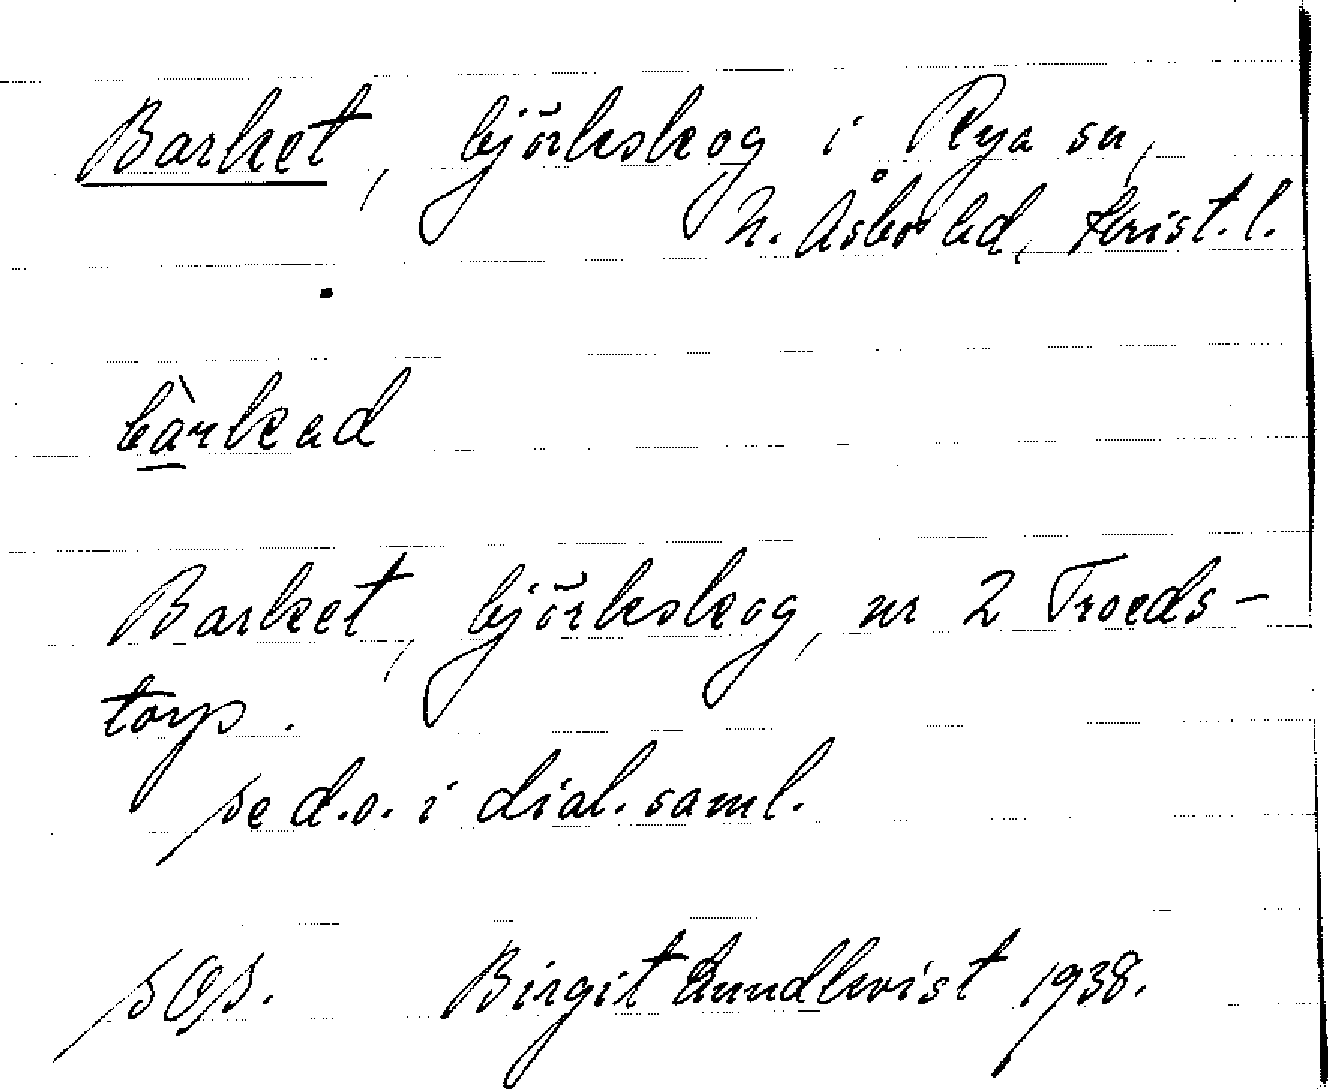 Barket, björkskog i Rya sn,
N. Åsbo hd, Krist. l.
bàrkəd
Barket, björkskog, nr 2 Troeds-
torp.
se d.o. i dial. saml.
sOs. Birgit Lundkvist 1938.